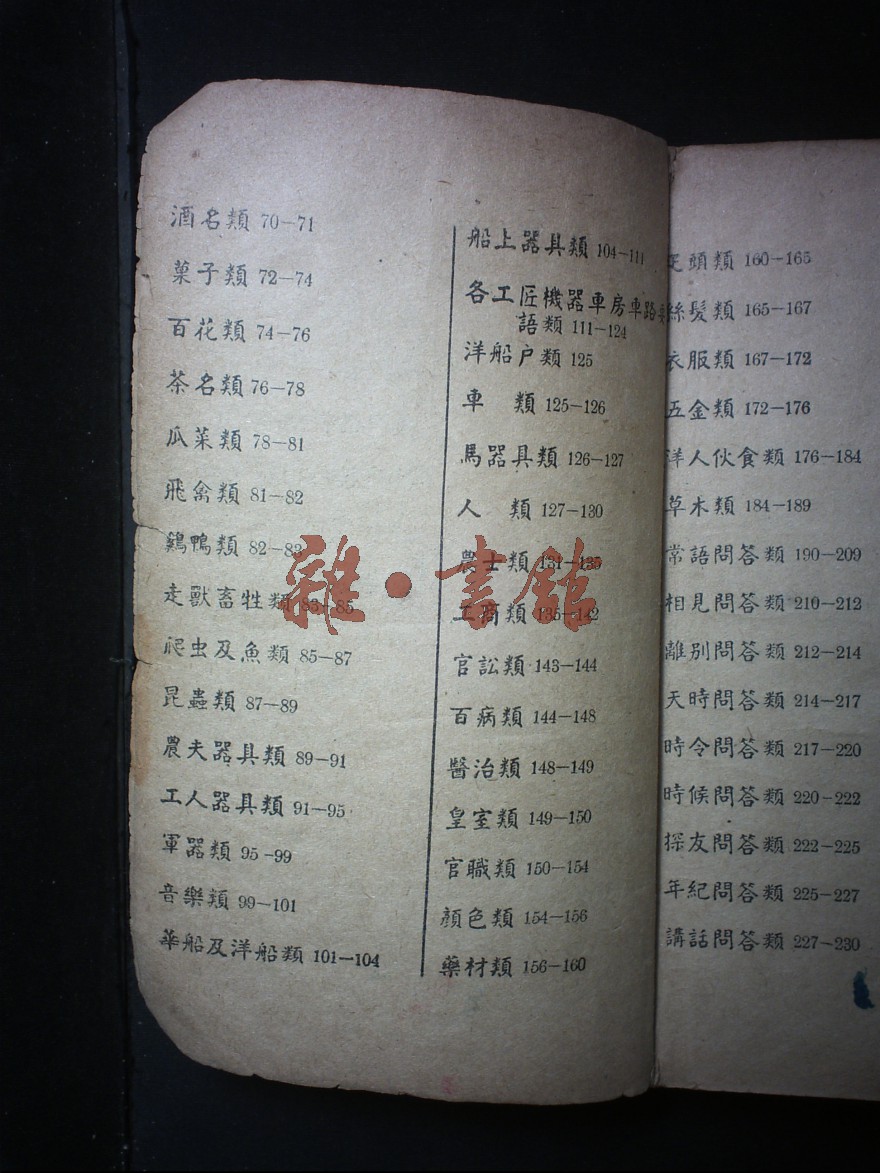 酒名類 70—71
菓子類 72—74
百花類 74—76
茶名類 76—78
瓜菜類 78—81
飛禽類 81—82
鷄鴨類 82—83
走獸畜牲類 83—85
爬虫及魚類 85—87
昆蟲類 87—89
農夫器具類 89—91
工人器具類 91—95
軍器類 95-99
音樂類 99—101
華船及洋船類 101—104
船上器具類 104—111
各工匠機器車房車路
語類 111—124
洋船户類 125
車 類 125—126
馬器具類 126—127
人 類 127—130
農士類 131—135
工商類 135—142
官訟類 143—144
百病類 144—148
醫治類 148—149
皇室類 149—150
官職類 150—154
顏色類 154—156
藥材類 156—160
疋頭類 160—165
絲髪類 165—167
衣服類 167—172
五金類 172—176
洋人伙食類 176—184
草木類 184—189
常語問答類 190—209
相見問答類 210—212
離別問答類 212—214
天時問答類 214—217
時令問答類 217—220
時候問答類 220-222
探友問答類 222—225
年紀問答類 225—227
講話問答類 227—230
雜·書館